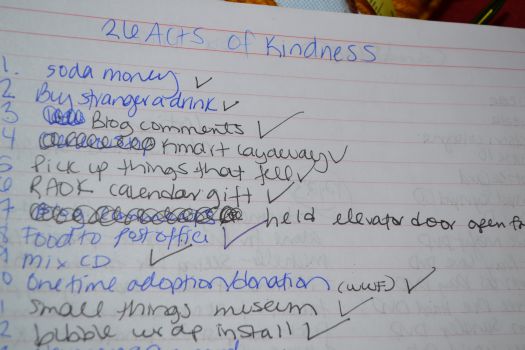 26 Acts of Kindness
1. soda money ✓
2 Buy stranger a drink ✓
3 Blog comments ✓
4 Kmart layaway ✓
5 Pick up things that fell ✓
6 RAOK calendar gift ✓
7 held elevator door open
8 Food to post office ✓
9 mix CD ✓
0 One time adoption/donation (WWF) ✓
1 small things museum ✓
2 bubble wrap install ✓